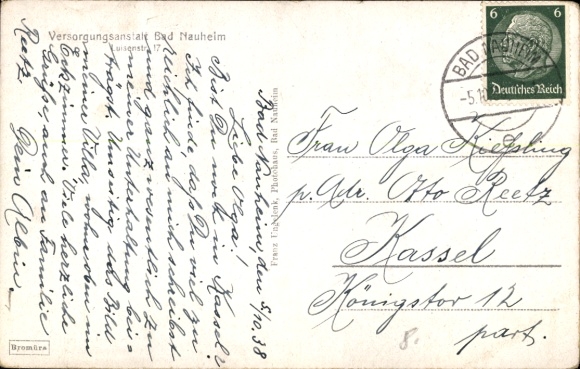 Versorgungsanstalt Bad Nauheim
Luisenstr. 17
Bad Nauheim, den 5/10.38
Liebe Olga!
Bist Du noch in Kassel?
Ich finde, daß Du viel zu
wirklich an mich schreibst
und ganz wesentlich zu
meiner Unterhaltung bei-
trägst. Umseitig das Bild
meiner Villa, im
Eckzimmer. Viele herzliche
Grüße, auch an Familie
Reetz. Dein Albin.
Franz Ungedenk, Photohaus, Bad Nauheim
Bromüra
6 6
Deutsches Reich
BAD NAUHEIM
-5.10
Frau Olga Kießling
p. Adr. Otto Reetz
Kassel
Königstor 12
part.
8.